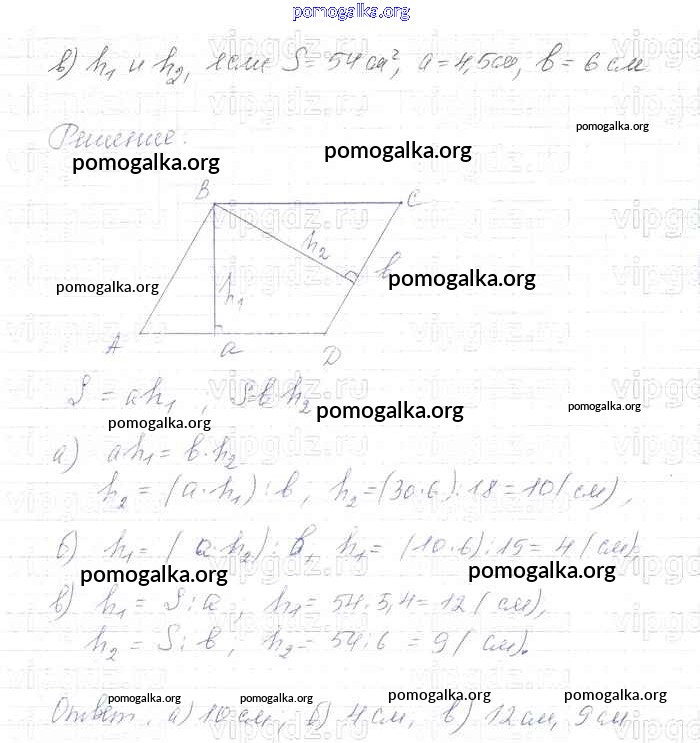 pomogalka.org
в) h₁ и h₂, если S = 54 см², a = 4,5 см, b = 6 см
Решение:
pomogalka.org pomogalka.org pomogalka.org
B C
h₂
h₁ b
pomogalka.org pomogalka.org
A a D
S = ah₁ ; S = b·h₂
pomogalka.org pomogalka.org pomogalka.org
а) ah₁ = b·h₂
h₂ = (a·h₁) : b ; h₂ = (30·6) : 18 = 10 (см),
б) h₁ = (a·h₂) : b, h₁ = (10·6) : 15 = 4 (см),
pomogalka.org pomogalka.org
в) h₁ = S : a, h₁ = 54 : 5,4 = 12 (см),
h₂ = S : b, h₂ = 54 : 6 = 9 (см).
pomogalka.org pomogalka.org pomogalka.org pomogalka.org
Ответ: а) 10 см, б) 4 см, в) 12 см, 9 см
vipgdz.ru